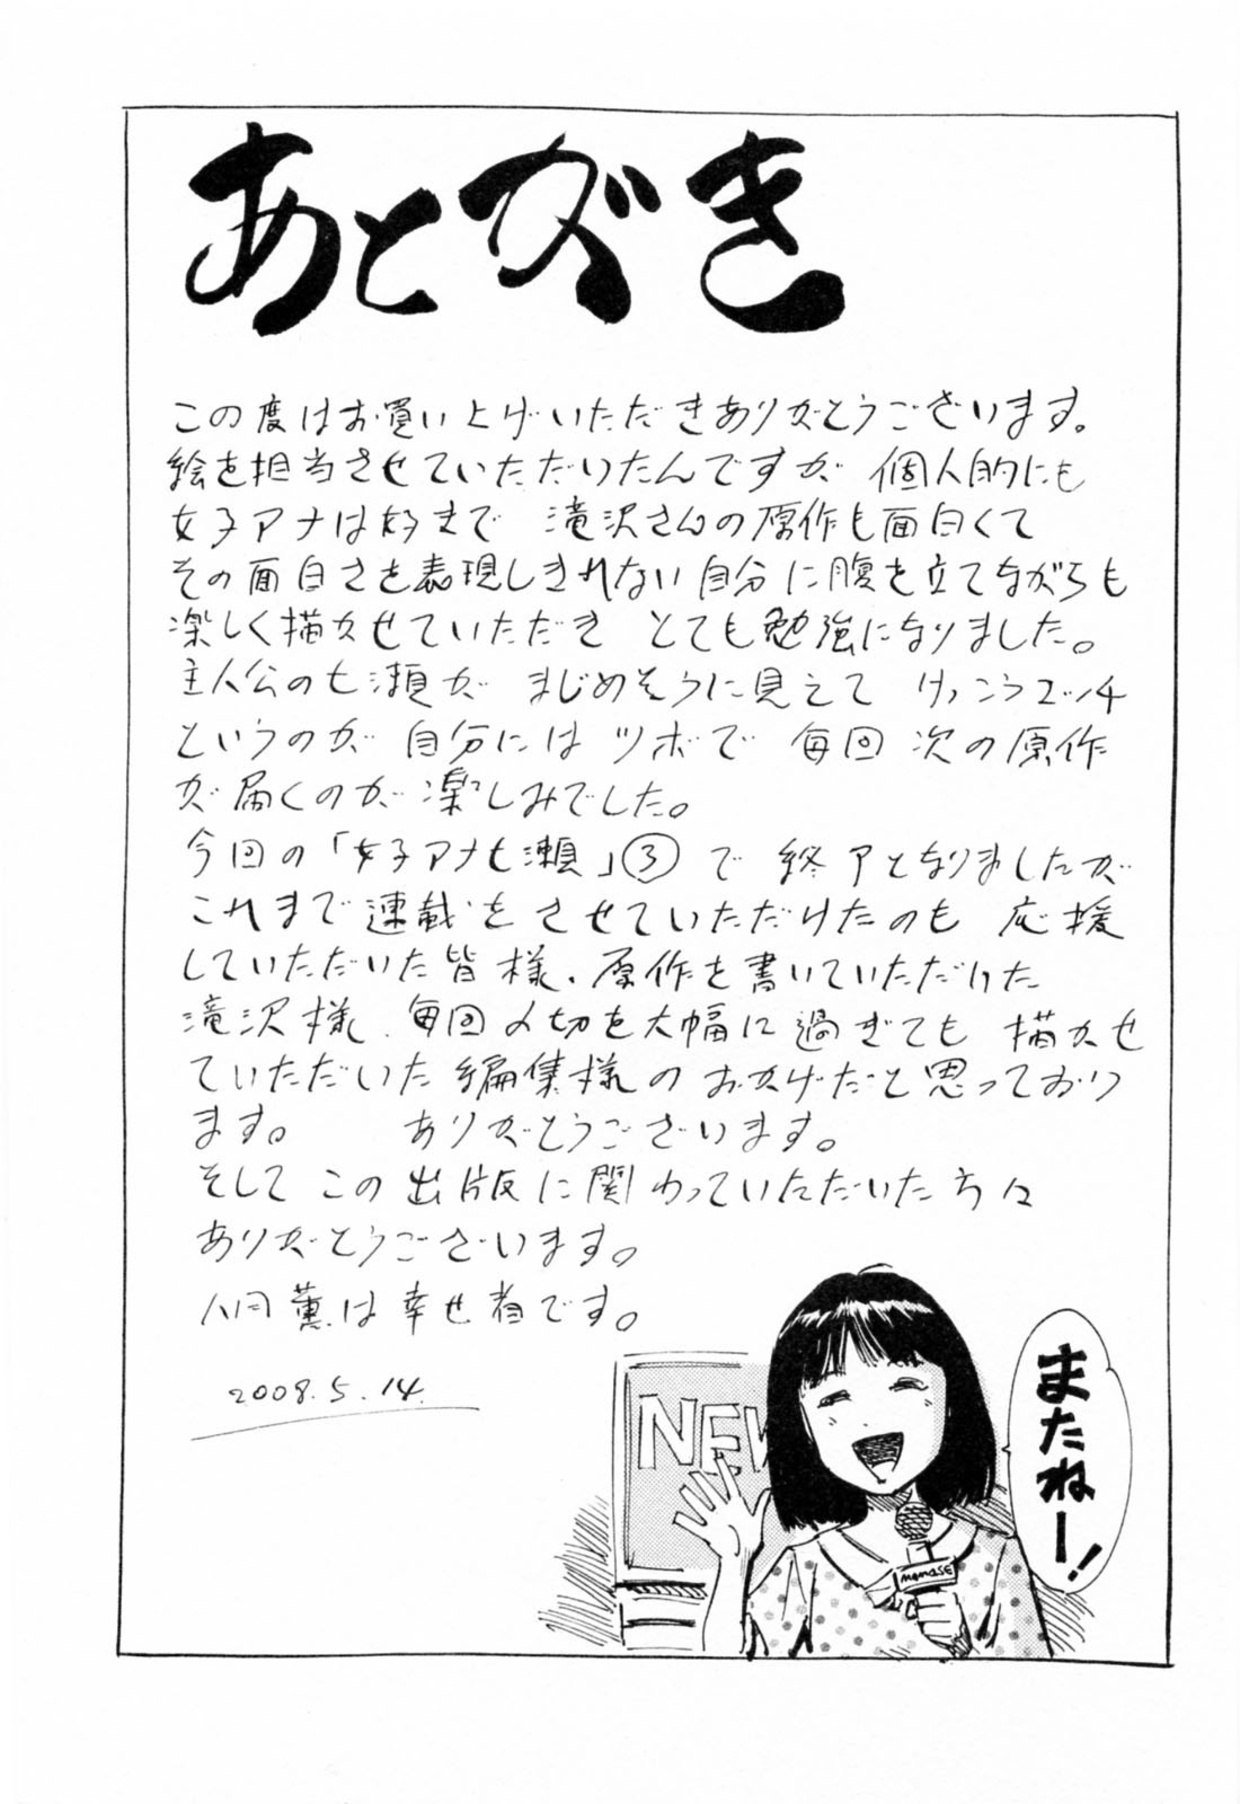 あとがき
この度はお買い上げいただきありがとうございます。
絵を担当させていただいたんですが 個人的にも
女子アナは好きで 滝沢さんの原作も面白くて
その面白さを表現しきれない自分に腹を立てながらも
楽しく描かせていただき とても勉強になりました。
主人公の七瀬が まじめそうに見えて けっこうエッチ
というのが 自分には ツボで 毎回 次の原作
が届くのが 楽しみでした。
今回の「女子アナ七瀬」③で 終了となりましたが
これまで連載をさせていただけたのも 応援
していただいた皆様、原作を書いていただけた
滝沢様、毎回〆切を大幅に過ぎても 描かせ
ていただいた編集様のおかげだと思っており
ます。 ありがとうございます。
そして この出版に関わっていただいた方々
ありがとうございます。
八月薫は幸せ者です。
2008.5.14.
NEW
またねー!
NANASE